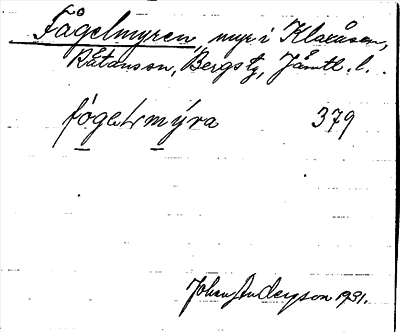 Fågelmyren, myr i Klaxåsen,
Rätansson, Bergs tg, Jämtl. l.
fógelʳmýra 379
Johan Anderson 1931.